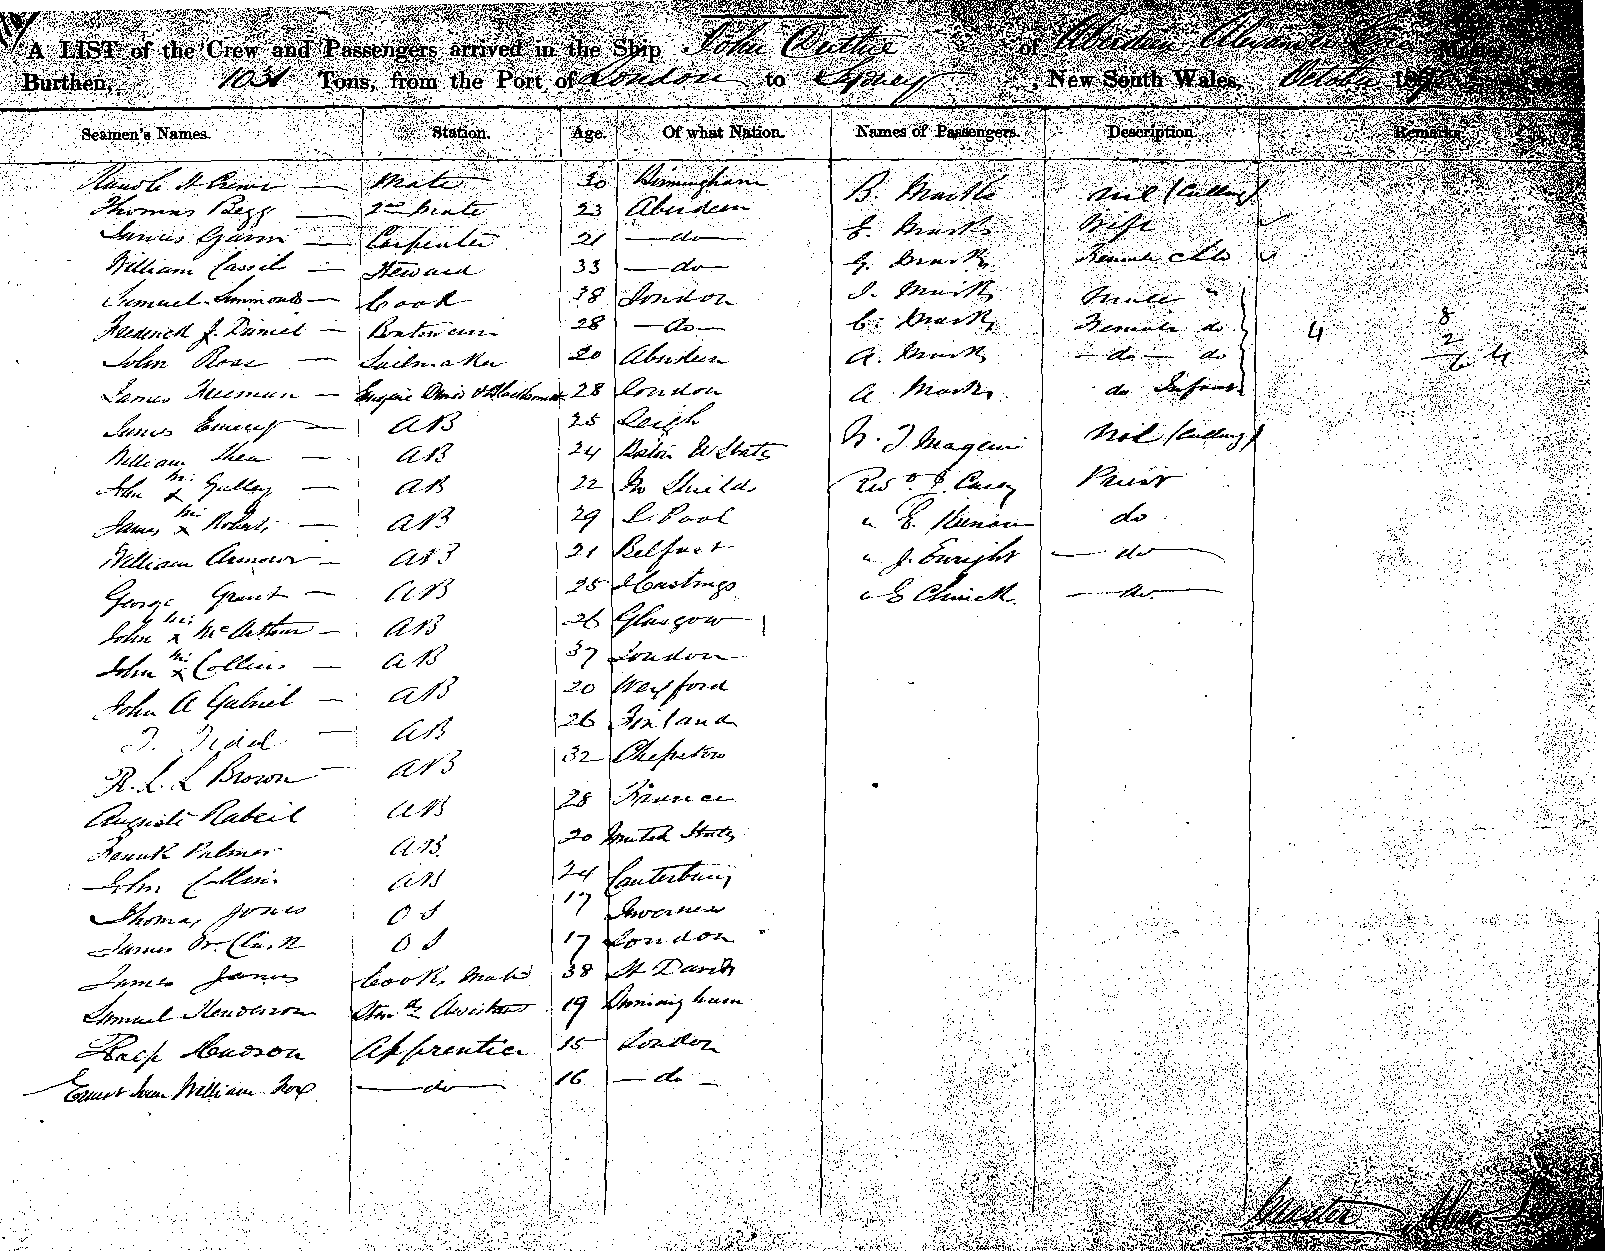 A LIST of the Crew and Passengers arrived in the Ship John Duthie of Aberdeen Alexander Master
Burthen, 1031 Tons, from the Port of London to Sydney, New South Wales, October 187
Seamen's Names. Station. Age. Of what Nation. Names of Passengers. Description. Remarks
Mate 30 Birmingham B. Marks
Thomas Begg 2nd Mate 23 Aberdeen E. Marks Wife
James Carpenter 21 do G. Marks Female
William Cassils Steward 33 do I. Marks Male "
Samuel Simmonds Cook 38 London C. Marks Female do 4 8
Frederick J. Daniel Boatswain 28 do 2
John Rose Sailmaker 20 Aberdeen A. Marks do do 6 4
James Freeman Engine Driver & Blacksmith 28 London A Marks do Infant
James Emery AB 25 Leigh
William Shea AB 24 Boston U States N. J Maguire
John x Gulley AB 22 No Shields Revd. J. Casey Priest
James x Roberts AB 29 L. Pool " E. Kiernan do
William Armour AB 21 Belfast " J. Enright do
George Grant AB 25 Hastings " E Chinick do
John x McArthur AB 26 Glasgow
John x Collins AB 37 London
John A Gabriel AB 20 Wexford
T. Tidd AB 26 Finland
R. L. L Brown AB 32 Chepstow
Auguste Rabeil AB 28 France
Frank Palmer AB 20 United States
John Collins AB 24 Canterbury
Thomas Jones OS 17 Inverness
James W. Clark OS 17 London
James James Cooks Mate 38 St Davids
Samuel Henderson Stewds Assistant 19 Birmingham
Hudson Apprentice 15 London
Ernest John William Fox do 16 do
Master